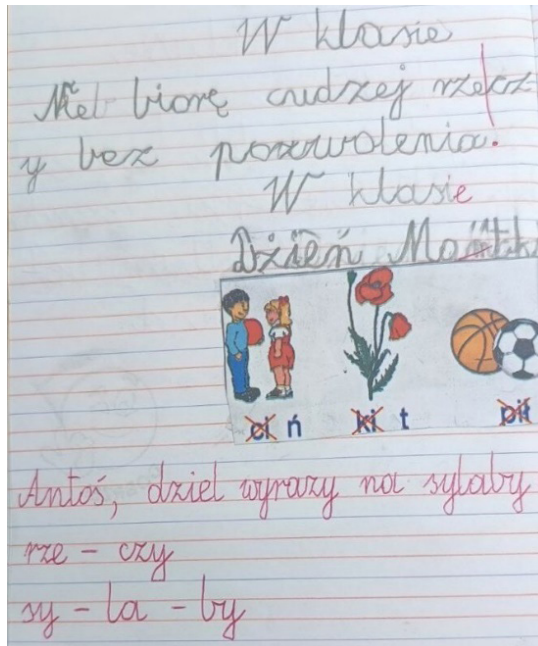 W klasie
Nie biorę cudzej rzecz
y bez pozwolenia.
W klasie
Dzień Matki
ci ń ki t pił
Antoś, dziel wyrazy na sylaby
rze - czy
sy - la - by